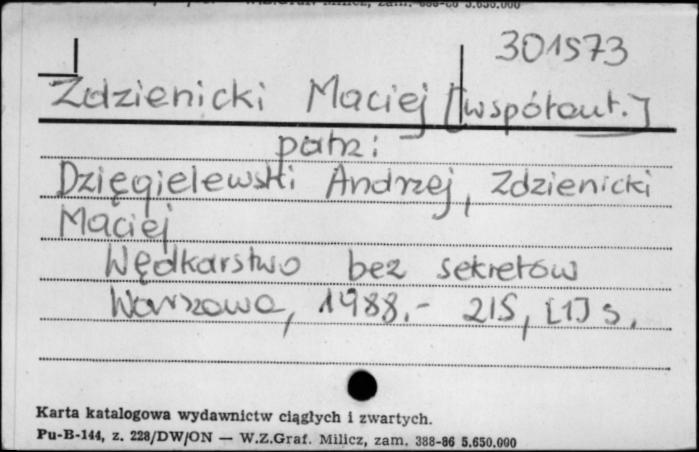 301573
Zdzienicki Maciej [współaut.]
patrz:
Dzięgielewski Andrzej, Zdzienicki
Maciej
Wędkarstwo bez sekretów
Warszawa, 1988.- 215, [1] s.
Karta katalogowa wydawnictw ciągłych i zwartych.
Pu-B-144, z. 228/DW/ON — W.Z.Graf. Milicz, zam. 388-86 5.650.000